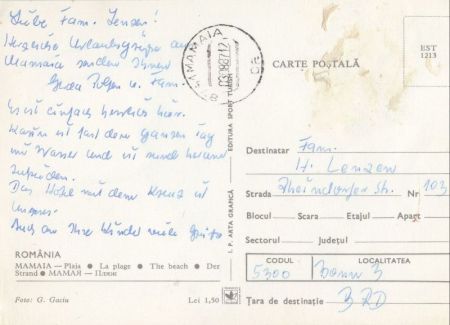 Liebe Fam. Lenzen!
Herzliche Urlaubsgrüße aus
Mamaia senden Ihnen
Fam.
Es ist einfach herrlich hier.
ist fast den ganzen Tag
im Wasser und ist rund herum
zufrieden.
Das Hotel mit dem Kreuz ist
unseres.
Auch an Ihre Kinder viele Grüße
ROMÂNIA
MAMAIA — Plaja ● La plage ● The beach ● Der
Strand ● МАМАЯ — Пляж
Foto: G. Gaciu
Lei 1,50
MAMAIA
EDITURA SPORT TURISM
I. P. ARTA GRAFICĂ
CARTE POȘTALĂ
EST
1213
Destinatar Fam.
H. Lenzen
Strada Rheindorfer Str. Nr 103
Blocul Scara Etajul Apart
Sectorul Județul
CODUL LOCALITATEA
5300 Bonn 3
Țara de destinație BRD